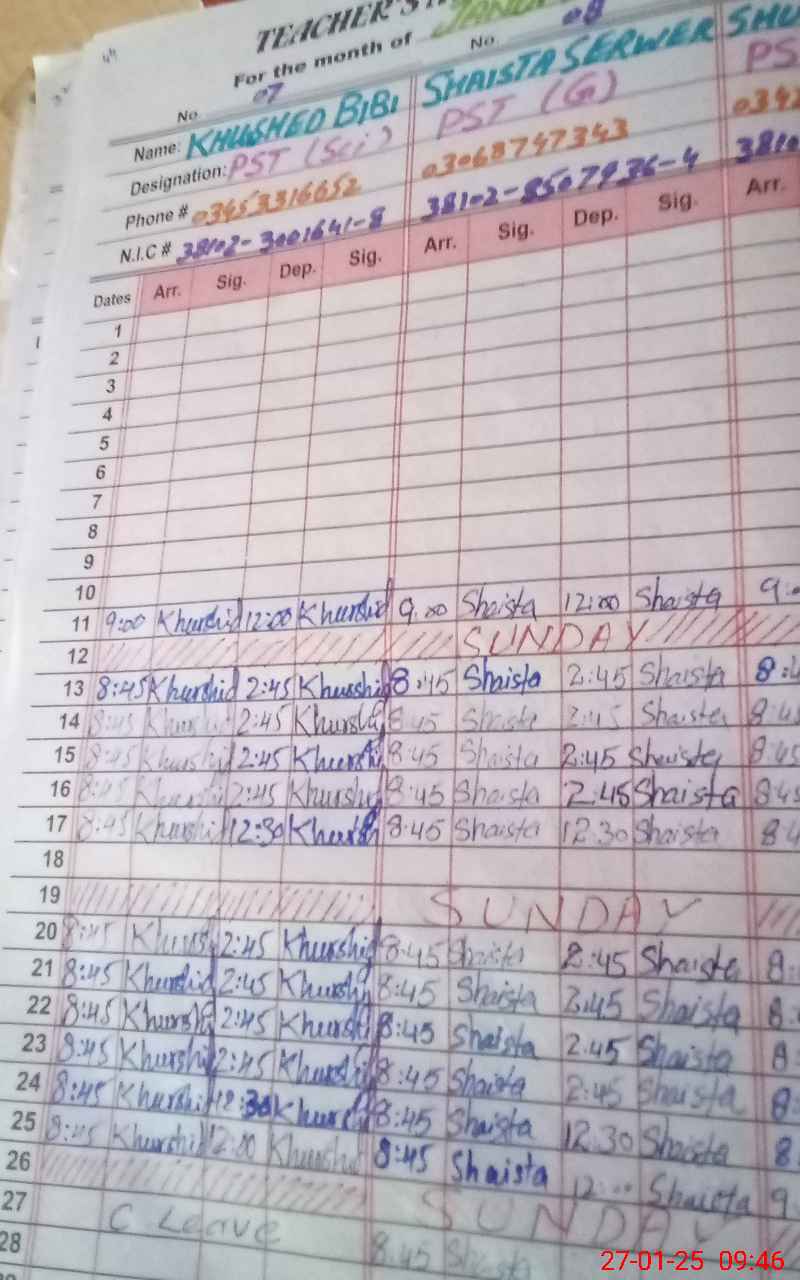 TEACHER'S
For the month of
No. 07 No. 08
Name: KHUSHED BIBI SHAISTA SERWER
Designation: PST (Sci) PST (G) PS
Phone # 03453316652 03068747343 0342
N.I.C # 38102-3001641-8 38102-8507936-4 3810
Dates Arr. Sig. Dep. Sig. Arr. Sig. Dep. Sig. Arr.
1
2
3
4
5
6
7
8
9
10
11 9:00 Khurshid 12:00 Khurshid 9:00 Shaista 12:00 Shaista 9:0
12 SUNDAY
13 8:45 Khurshid 2:45 Khurshid 8:45 Shaista 2:45 Shaista 8:4
14 8:45 Khurshid 2:45 Khurshid 8:45 Shaista 2:45 Shaista 8:4
15 8:45 Khurshid 2:45 Khurshid 8:45 Shaista 2:45 Shaista 8:45
16 8:45 Khurshid 2:45 Khurshid 8:45 Shaista 2:45 Shaista 845
17 8:45 Khurshid 12:30 Khurshid 8:45 Shaista 12:30 Shaista 8 4
18
19 SUNDAY
20 8:45 Khurshid 2:45 Khurshid 8:45 Shaista 2:45 Shaista 8:
21 8:45 Khurshid 2:45 Khurshid 8:45 Shaista 2:45 Shaista 8:
22 8:45 Khurshid 2:45 Khurshid 8:45 Shaista 2.45 Shaista 8:
23 8:45 Khurshid 2:45 Khurshid 8:45 Shaista 2:45 Shaista 8:
24 8:45 Khurshid 12:30 Khurshid 8:45 Shaista 12:30 Shaista 8
25 8:45 Khurshid 12:00 Khurshid 8:45 Shaista 12:00 Shaista 9
26 SUNDAY
27 C Leave 8:45 Shaista
28
27-01-25 09:46